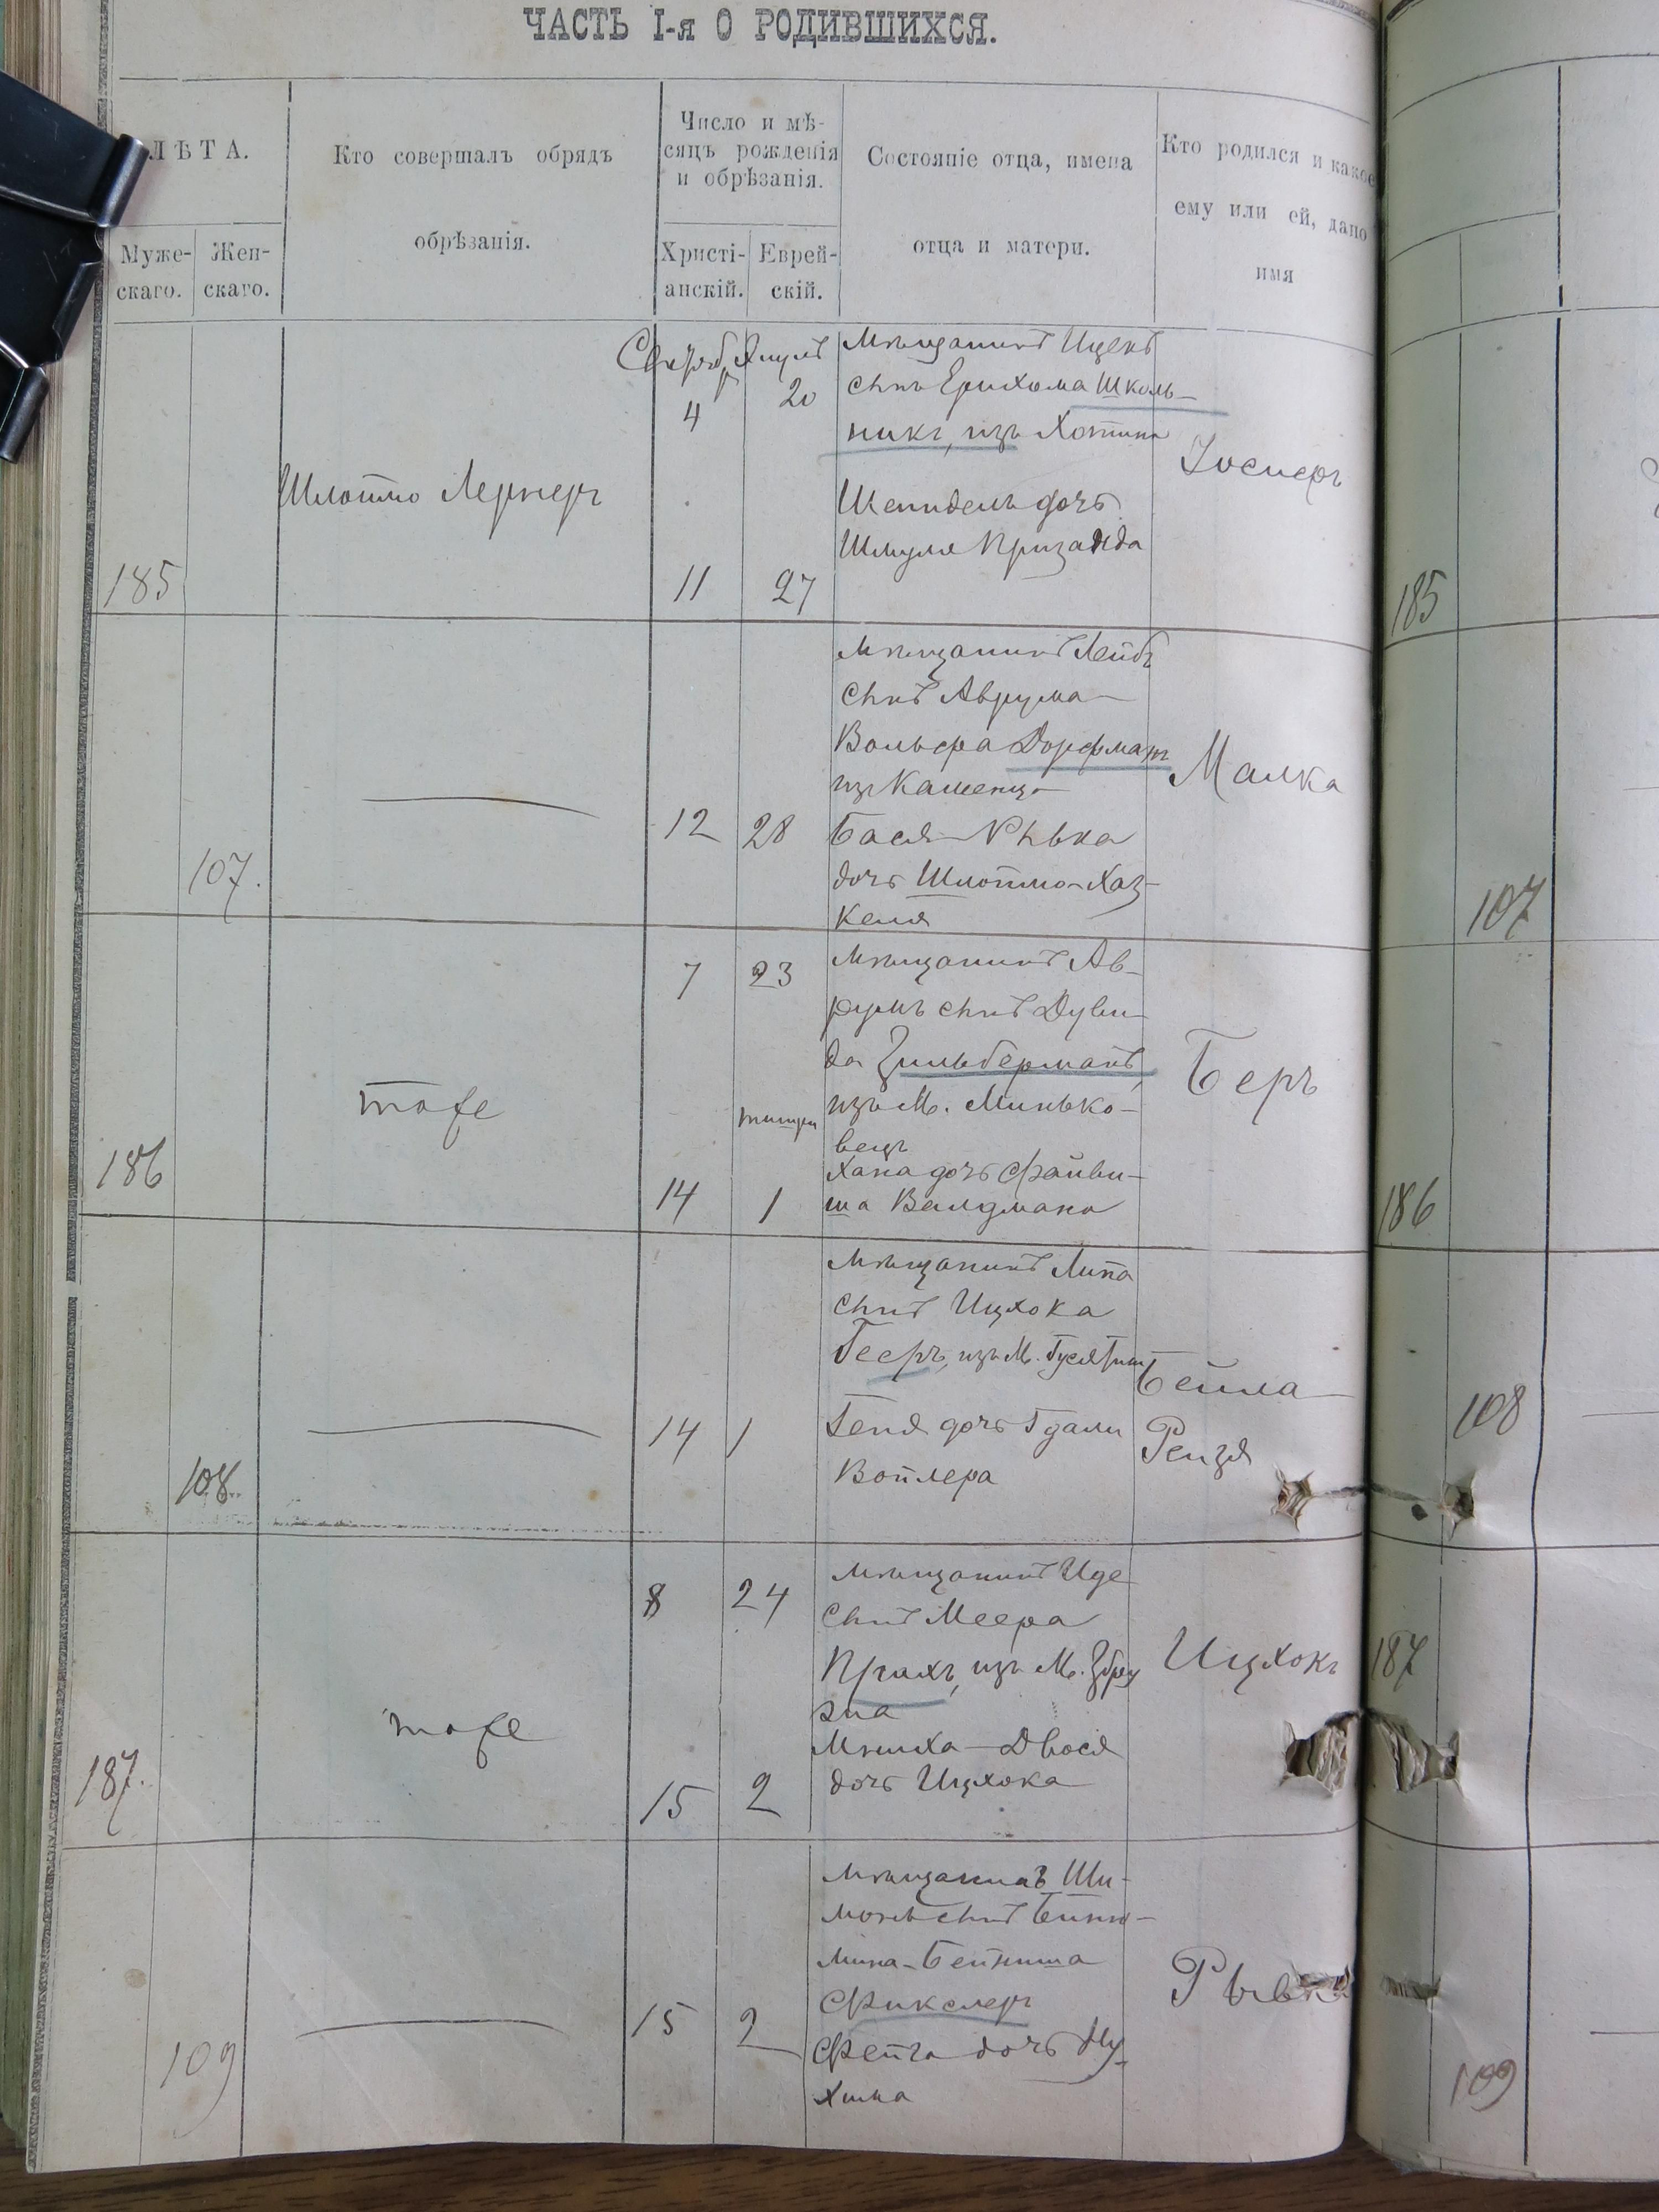 ЧАСТЬ I-я О РОДИВШИХСЯ.
ЛѢТА.
Муже-
скаго.
Жен-
скаго.
Кто совершалъ обрядъ
обрѣзанія.
Число и мѣ-
сяцъ рожденія
и обрѣзанія.
Христі-
анскій.
Еврей-
скій.
Состояніе отца, имена
отца и матери.
Кто родился и какое
ему или ей, дано
имя
185
Шлоймо Лернеръ
4
20
11
27
Мѣщанинъ Ицекъ
сынъ Ерихома Школь-
никъ, изъ Хотина
Шейндель дочь
Шмуля
185
107.
12
28
Мѣщанинъ Лейбъ
сынъ Аврума
Вольфа Дорфманъ
изъ Каменца
Бася Рывка
дочь Шлоймо-Хаз-
келя
Малка
107
186
тоже
7
23
тишри
14
1
Мѣщанинъ Ав-
румъ сынъ Дуви-
да Зильберманъ,
изъ М. Минько-
вецъ
Хана дочь Файви-
ша Валдмана
Беръ
186
108
14
1
Мѣщанинъ Липа
сынъ Ицхока
Гееръ, изъ М. Гусятин
Геня дочь Гдали
Войлера
Бейла
Рейзя
108
187.
тоже
8
24
15
2
Мѣщанинъ Иде
сынъ Меера
изъ М. Збри
зна
Двося
дочь Ицхока
Ицхокъ
187
109
15
2
Мѣщанинъ Ши-
монъ сынъ Биню-
мина-Бейниша
Фикслеръ
Фейга дочь Ну-
хима
Рывка
109